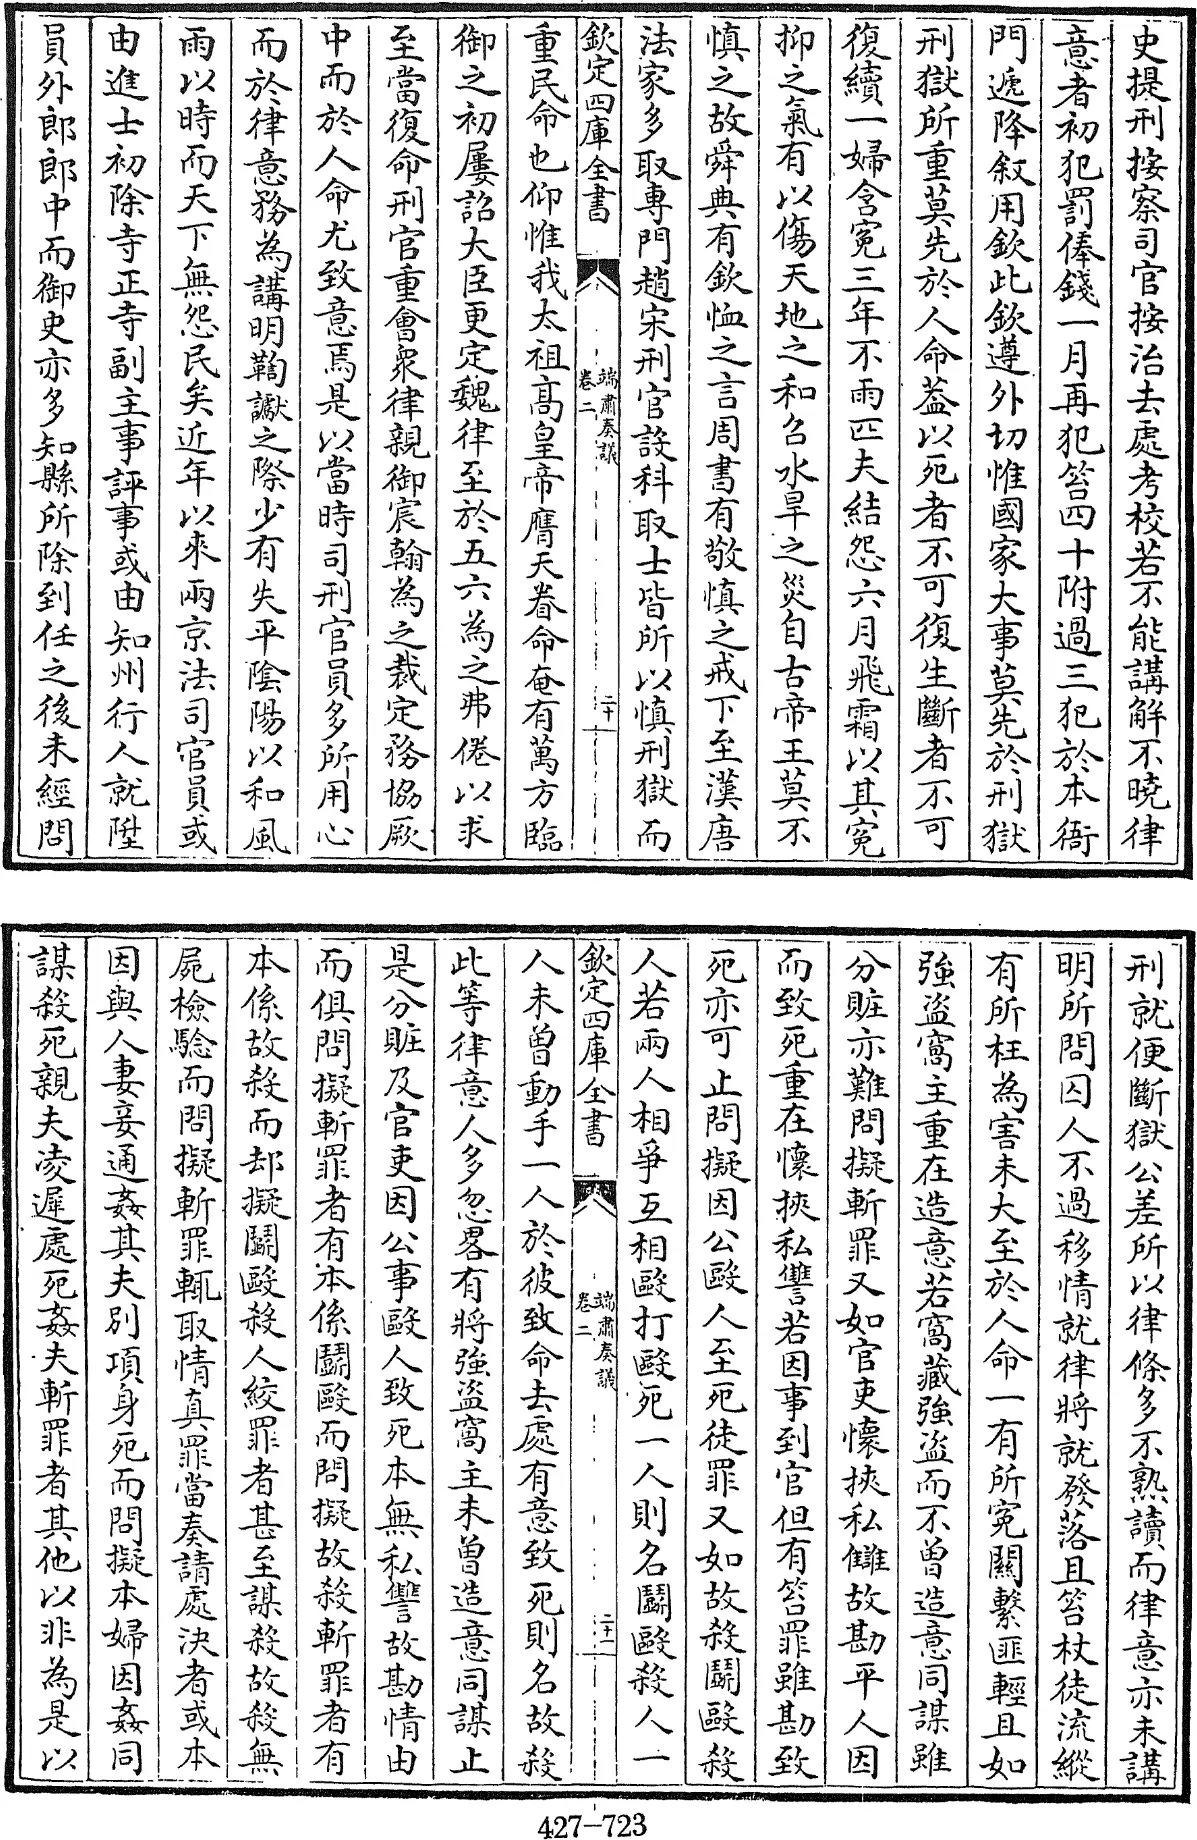 史提刑按察司官按治去處考校若不能講解不曉律
意者初犯罰俸錢一月再犯笞四十附過三犯於本衙
門遞降叙用欽此欽遵外切惟國家大事莫先於刑獄
刑獄所重莫先於人命葢以死者不可復生斷者不可
復續一婦含寃三年不雨匹夫結怨六月飛霜以其寃
抑之氣有以傷天地之和召水旱之災自古帝王莫不
慎之故舜典有欽恤之言周書有敬慎之戒下至漢唐
法家多取專門趙宋刑官設科取士皆所以慎刑獄而
欽定四庫全書
端肅奏議
卷二
二十
重民命也仰惟我太祖高皇帝膺天眷命奄有萬方臨
御之初屢詔大臣更定魏律至於五六為之弗倦以求
至當復命刑官重會衆律親御宸翰為之裁定務協厥
中而於人命尤致意焉是以當時司刑官員多所用心
而於律意務為講明鞫讞之際少有失平陰陽以和風
雨以時而天下無怨民矣近年以來兩京法司官員或
由進士初除寺正寺副主事評事或由知州行人就陞
員外郎郎中而御史亦多知縣所除到任之後未經問
刑就便斷獄公差所以律條多不熟讀而律意亦未講
明所問囚人不過移情就律將就發落且笞杖徒流縱
有所枉為害未大至於人命一有所寃關繫匪輕且如
強盜窩主重在造意若窩藏強盜而不曾造意同謀雖
分贓亦難問擬斬罪又如官吏懷挾私讎故勘平人因
而致死重在懷挾私讐若因事到官但有笞罪雖勘致
死亦可止問擬因公毆人至死徒罪又如故殺鬬毆殺
人若兩人相爭互相毆打毆死一人則名鬬毆殺人一
欽定四庫全書
端肅奏議
卷二
二十一
人未曾動手一人於彼致命去處有意致死則名故殺
此等律意人多忽畧有將強盜窩主未曾造意同謀止
是分贓及官吏因公事毆人致死本無私讐故勘情由
而俱問擬斬罪者有本係鬬毆而問擬故殺斬罪者有
本係故殺而却擬鬬毆殺人絞罪者甚至謀殺故殺無
屍檢驗而問擬斬罪輒取情真罪當奏請處決者或本
因與人妻妾通姦其夫別項身死而問擬本婦因姦同
謀殺死親夫凌遲處死姦夫斬罪者其他以非為是以
427-723